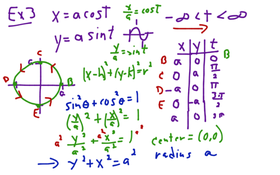 Ex 3
x = a cos t
x/a = cos t
-∞ < t < ∞
y = a sin t
y/a = sin t
(x-h)² + (y-k)² = r²
sin²θ + cos²θ = 1
(y/a)² + (x/a)² = 1
a² y²/a² + a² x²/a² = 1·a²
→ y² + x² = a²
C
B
D
E
a
x y t
B a 0 0 B
C 0 a π/2
D -a 0 π
E 0 -a 3π/2
a 0 2π
center = (0,0)
radius a